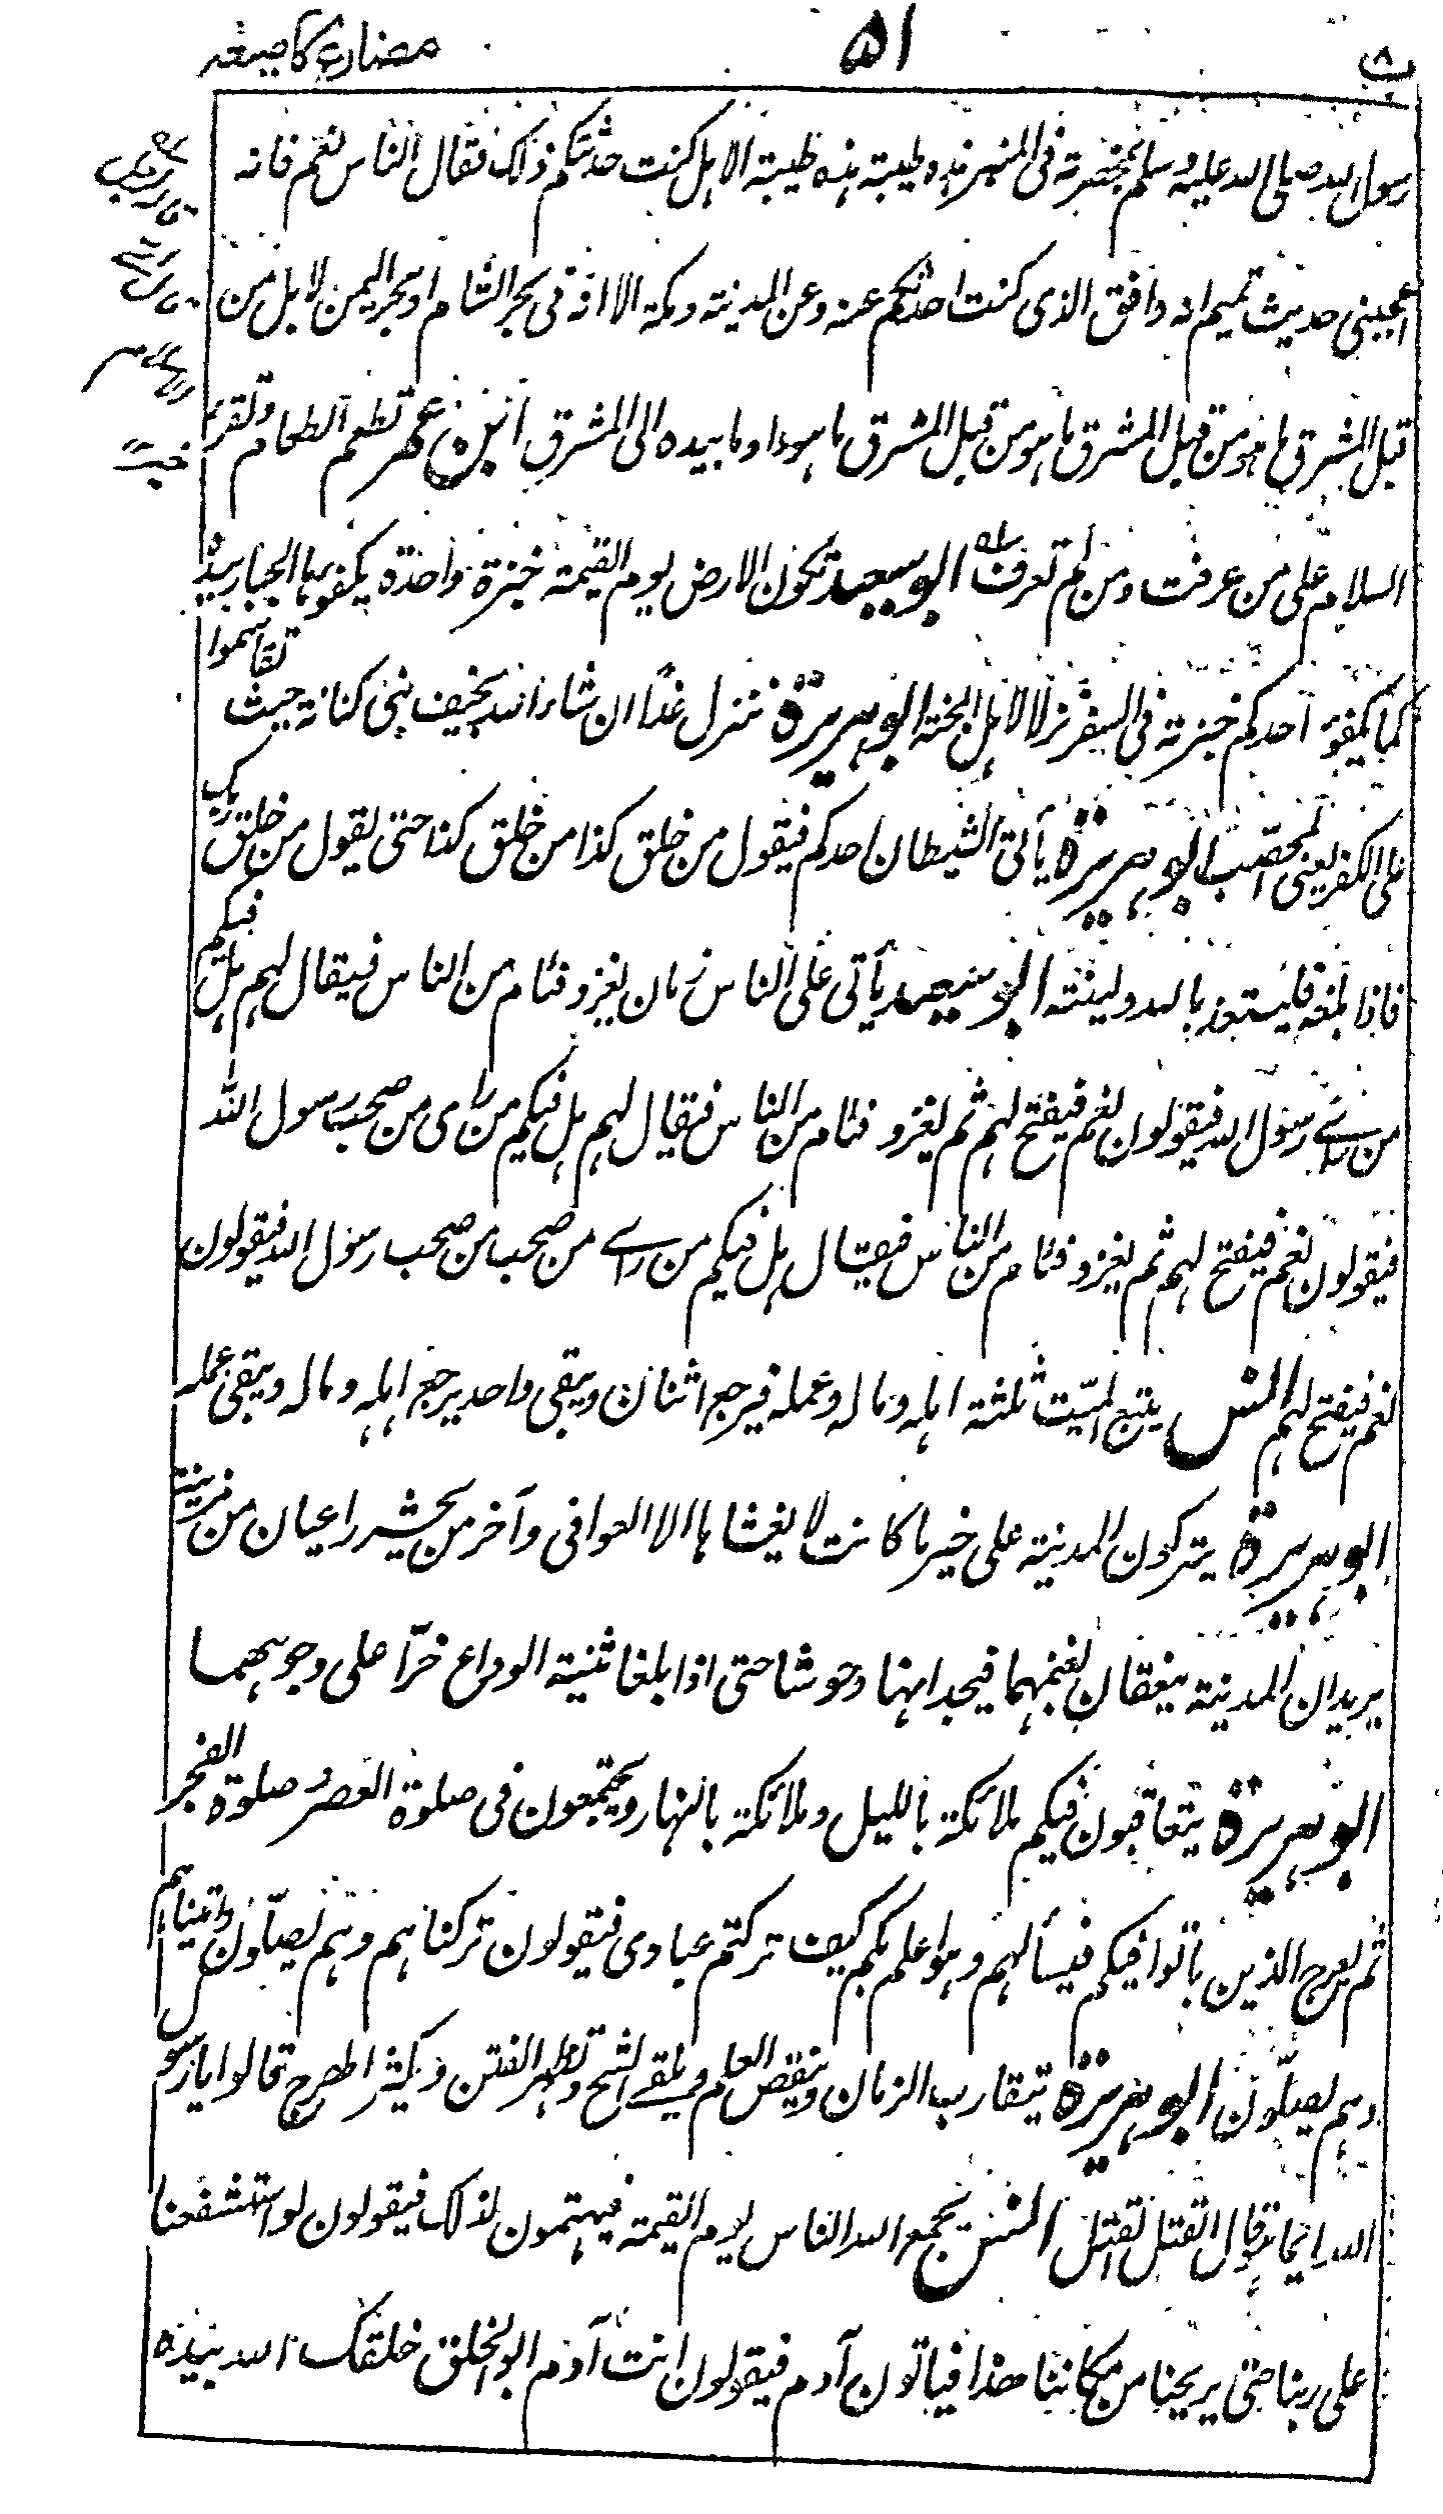 مضارع کا صیغہ
۵۱
ب
رسول اللہ صلی اللہ علیہ وسلم بمخصرتہ فی المنبر ہذہ طیبۃ ہذہ طیبۃ الا ہل کنت حدثتکم ذلک فقال الناس نعم فانہ
اعجبنی حدیث تمیم انہ وافق الذی کنت احدثکم عنہ وعن المدینۃ ومکۃ الا انہ فی بحر الشام او بحر الیمن لا بل من
قبل المشرق ما ہو من قبل المشرق ما ہو من قبل المشرق ما ہو واومأ بیدہ الی المشرق ابن عمر تطعم الطعام وتقرئ
السلام علی من عرفت ومن لم تعرف ابو سعید تکون الارض یوم القیمۃ خبزۃ واحدۃ یکفؤہا الجبار بیدہ
کما یکفؤ احدکم خبزتہ فی السفر نزلا لاہل الجنۃ ابو ہریرۃ ننزل غدًا ان شاء اللہ بخیف بنی کنانۃ حیث تقاسموا
علی الکفر یعنی المحصّب ابو ہریرۃ یأتی الشیطان احدکم فیقول من خلق کذا من خلق کذا حتی یقول من خلق ربک
فاذا بلغہ فلیستعذ باللہ ولینتہ ابو سعید یأتی علی الناس زمان یغزو فئام من الناس فیقال لہم ہل فیکم
من رأے رسول اللہ فیقولون نعم فیفتح لہم ثم یغزو فئام من الناس فیقال لہم ہل فیکم من رأی من صحب رسول اللہ
فیقولون نعم فیفتح لہم ثم یغزو فئام من الناس فیقال ہل فیکم من رأے من صحب من صحب رسول اللہ فیقولون
نعم فیفتح لہم انس یتبع المیّت ثلثۃ اہلہ ومالہ وعملہ فیرجع اثنان ویبقی واحد یرجع اہلہ ومالہ ویبقی عملہ
ابو ہریرۃ یترکون المدینۃ علی خیر ما کانت لا یغشاہا الا العوافی وآخر من یحشر راعیان من مزینۃ
یریدان المدینۃ ینعقان بغنمہما فیجدانہا وحوشا حتی اذا بلغا ثنیۃ الوداع خرّا علی وجوہھما
ابو ہریرۃ یتعاقبون فیکم ملائکۃ باللیل وملائکۃ بالنہار ویجتمعون فی صلوۃ العصر وصلوۃ الفجر
ثم یعرج الذین باتوا فیکم فیسألہم وہو اعلم بکم کیف ترکتم عبادی فیقولون ترکناہم وہم یصلّون واتیناہم
وہم یصلّون ابو ہریرۃ یتقارب الزمان وینقص العلم ویلقے الشح وتظہر الفتن ویکثر الہرج قالوا یا رسول
اللہ ایما ہو قال القتل القتل انس یجمع اللہ الناس یوم القیمۃ فیہتمون لذلک فیقولون لو استشفعنا
علی ربنا حتی یریحنا من مکاننا ھذا فیاتون آدم فیقولون انت آدم ابو الخلق خلقک اللہ بیدہ